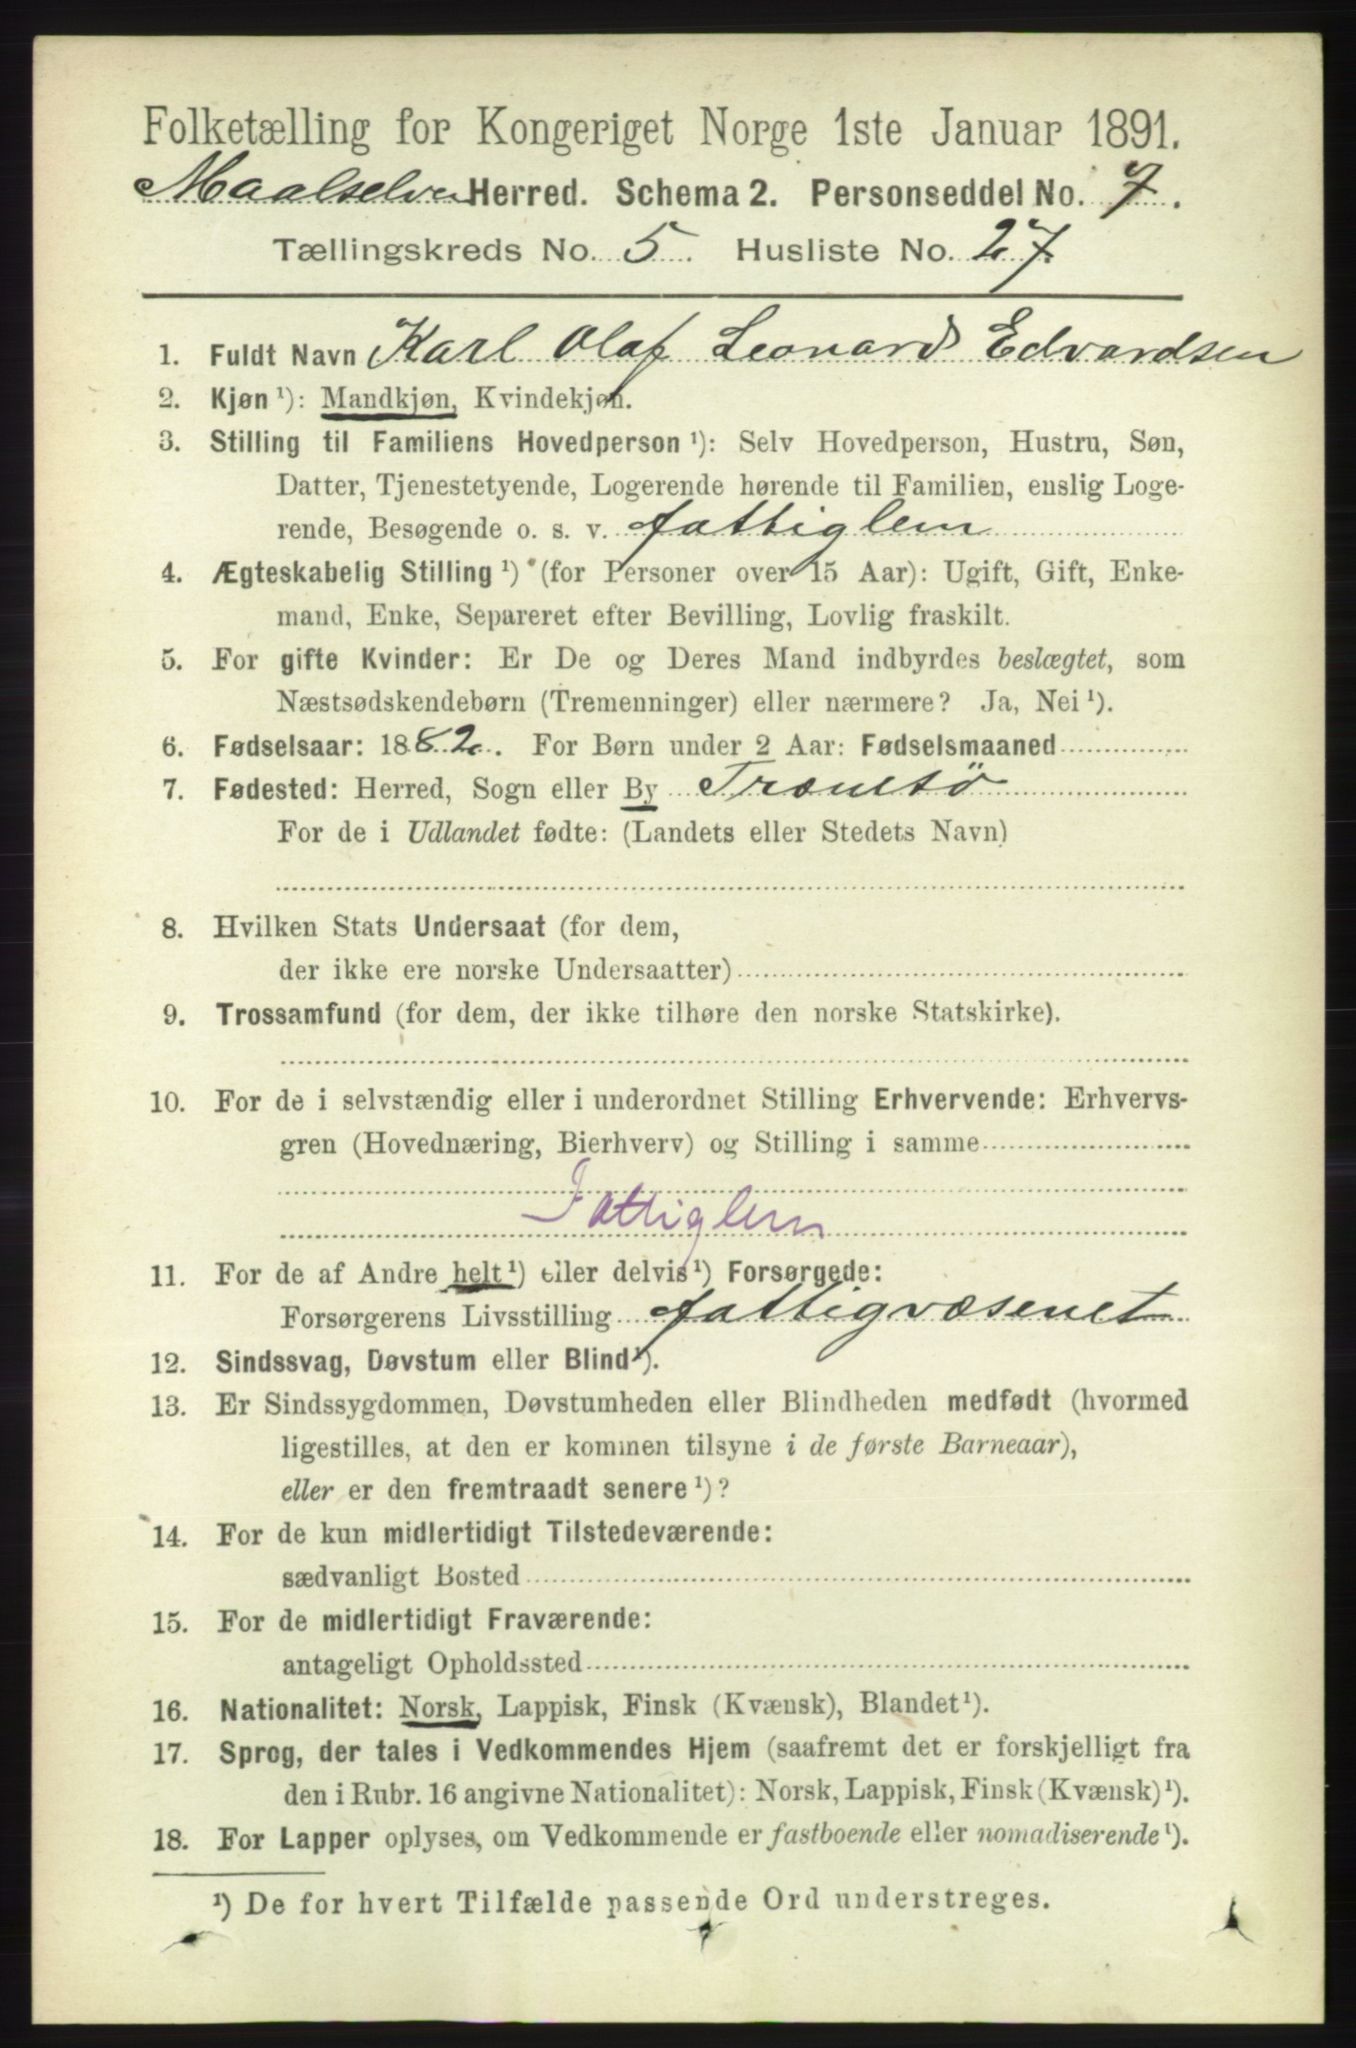 Folketælling for Kongeriget Norge 1ste Januar 1891.
Maalselven Herred. Schema 2. Personseddel No. 7.
Tællingskreds No. 5. Husliste No. 27
1. Fuldt Navn Karl Olaf Leonard Edvardsen
2. Kjøn ¹): Mandkjøn, Kvindekjøn.
3. Stilling til Familiens Hovedperson ¹): Selv Hovedperson, Hustru, Søn,
Datter, Tjenestetyende, Logerende hørende til Familien, enslig Loge-
rende, Besøgende o. s. v. fattiglem
4. Ægteskabelig Stilling ¹) (for Personer over 15 Aar): Ugift, Gift, Enke-
mand, Enke, Separeret efter Bevilling, Lovlig fraskilt.
5. For gifte Kvinder: Er De og Deres Mand indbyrdes beslægtet, som
Næstsødskendebørn (Tremenninger) eller nærmere? Ja, Nei ¹).
6. Fødselsaar: 1882. For Børn under 2 Aar: Fødselsmaaned
7. Fødested: Herred, Sogn eller By Tromsö
For de i Udlandet fødte: (Landets eller Stedets Navn)
8. Hvilken Stats Undersaat (for dem,
der ikke ere norske Undersaatter)
9. Trossamfund (for dem, der ikke tilhøre den norske Statskirke).
10. For de i selvstændig eller i underordnet Stilling Erhvervende: Erhvervs-
gren (Hovednæring, Bierhverv) og Stilling i samme
Fattiglem
11. For de af Andre helt ¹) eller delvis ¹) Forsørgede:
Forsørgerens Livsstilling fattigvæsenet
12. Sindssvag, Døvstum eller Blind ¹).
13. Er Sindssygdommen, Døvstumheden eller Blindheden medfødt (hvormed
ligestilles, at den er kommen tilsyne i de første Barneaar),
eller er den fremtraadt senere ¹)?
14. For de kun midlertidigt Tilstedeværende:
sædvanligt Bosted
15. For de midlertidigt Fraværende:
antageligt Opholdssted
16. Nationalitet: Norsk, Lappisk, Finsk (Kvænsk), Blandet ¹).
17. Sprog, der tales i Vedkommendes Hjem (saafremt det er forskjelligt fra
den i Rubr. 16 angivne Nationalitet): Norsk, Lappisk, Finsk (Kvænsk) ¹).
18. For Lapper oplyses, om Vedkommende er fastboende eller nomadiserende ¹).
¹) De for hvert Tilfælde passende Ord understreges.